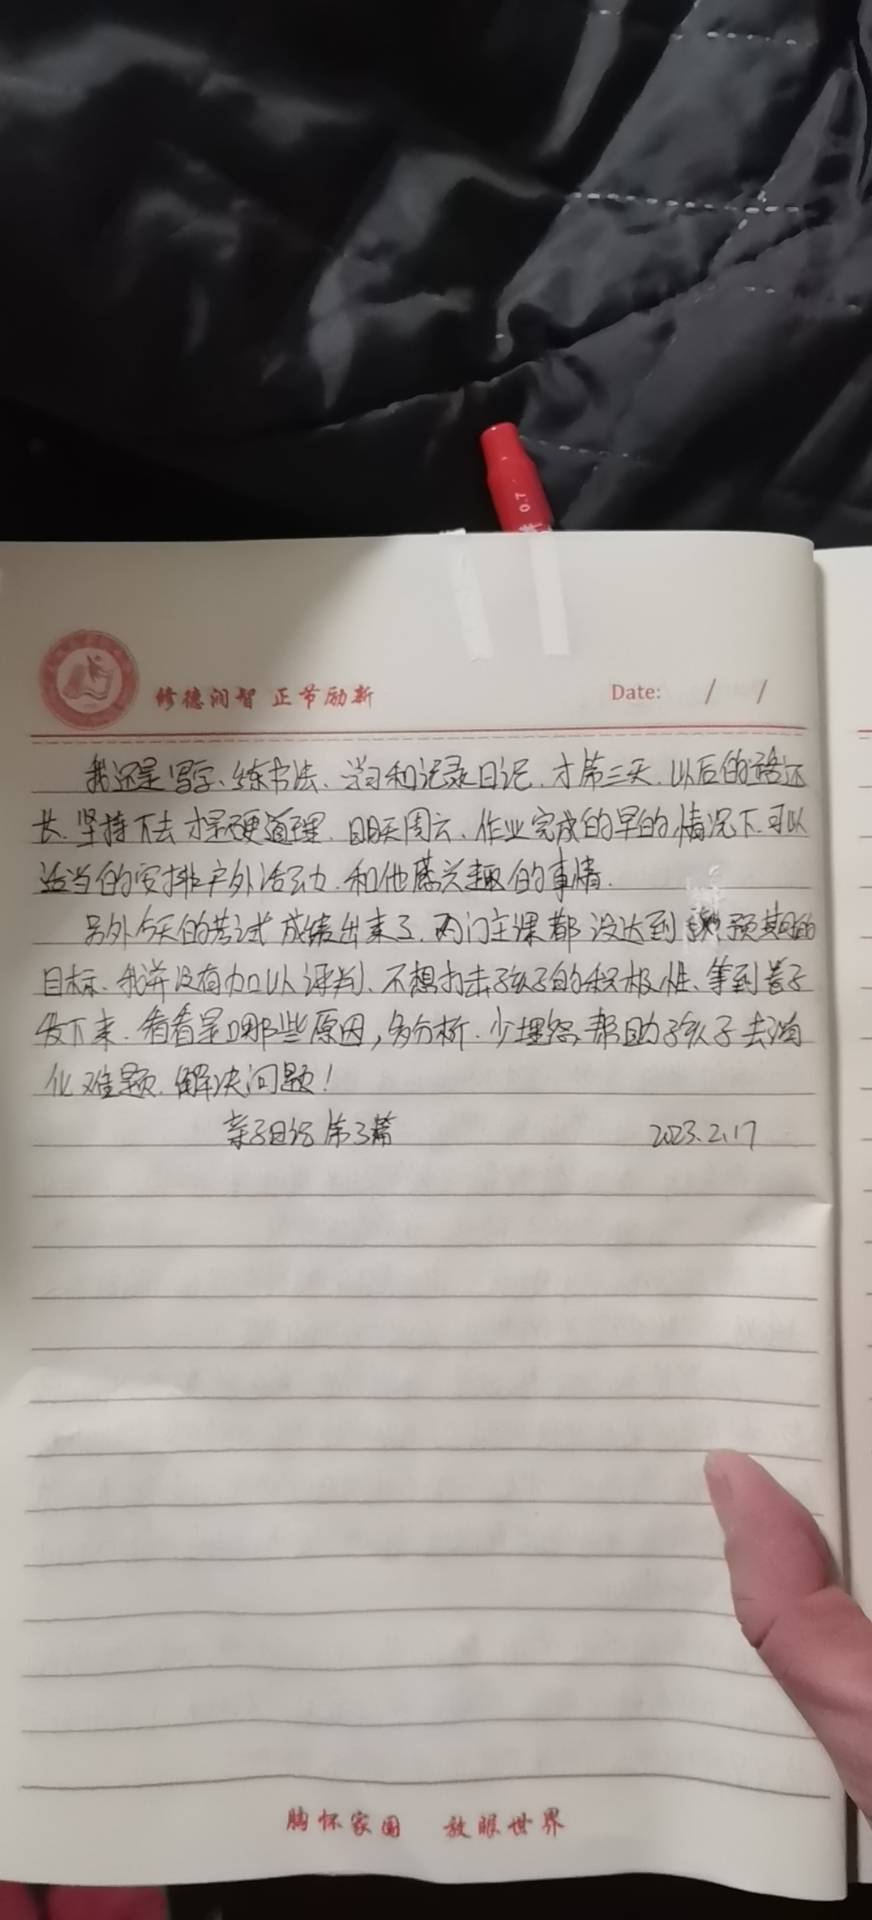 0.7
修德润智 正节励新
Date: / /
我还是写字、练书法、学习和记录日记.才第三天.以后的路还
长.坚持下去才是硬道理.明天周六.作业完成的早的情况下.可以
适当的安排户外活动.和他感兴趣的事情.
另外今天的考试成绩出来了.两门主课都没达到预期的
目标.我并没有加以评判.不想打击孩子的积极性.等到卷子
发下来.看看是哪些原因,多分析.少埋怨.帮助孩子去消
化难题.解决问题!
亲子日记第3篇 2023.2.17
胸怀家国 放眼世界